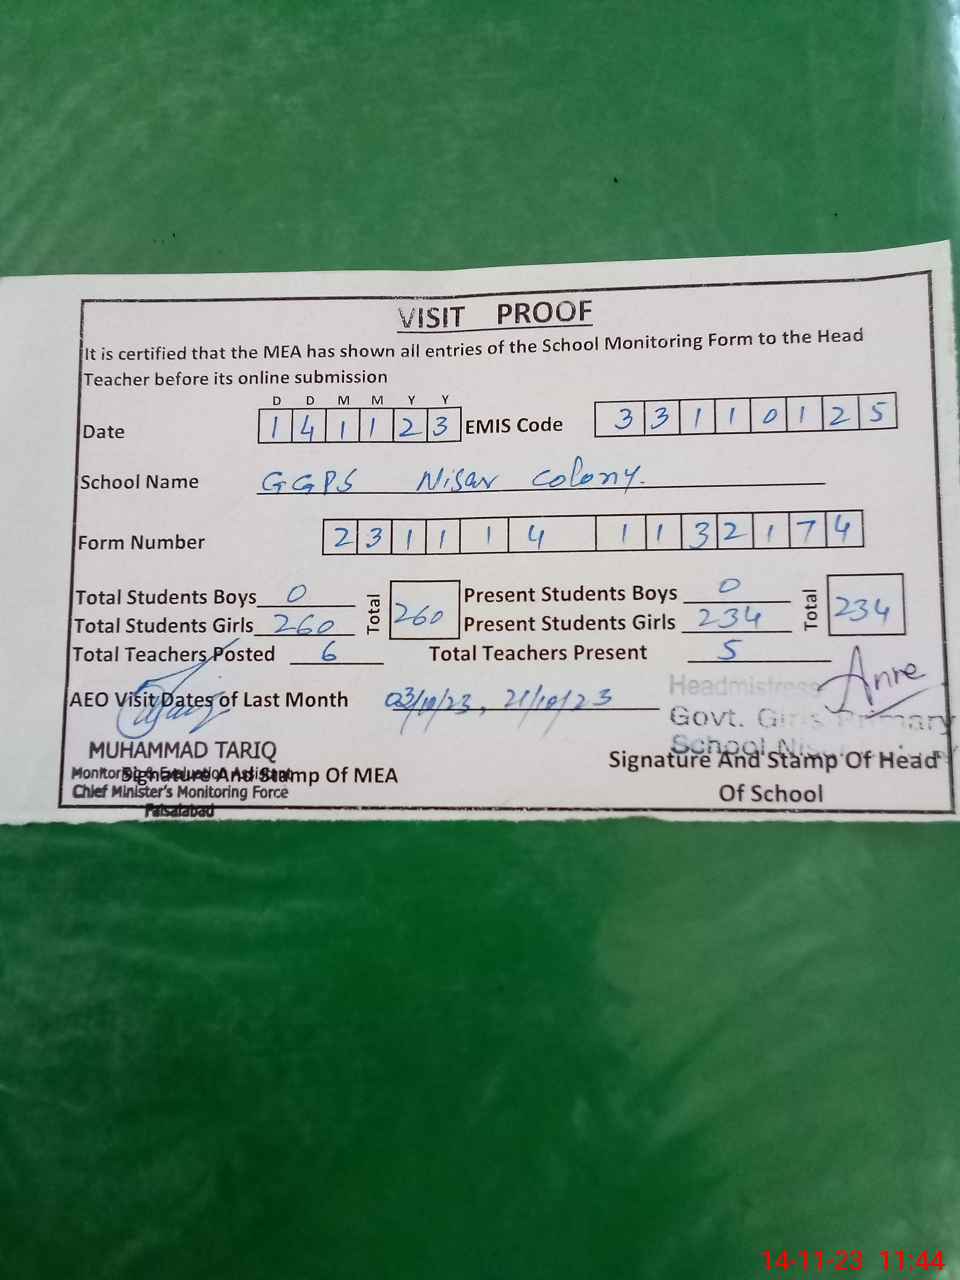 VISIT PROOF
It is certified that the MEA has shown all entries of the School Monitoring Form to the Head
Teacher before its online submission
D D M M Y Y
Date 1 4 1 1 2 3 EMIS Code 3 3 1 1 0 1 2 5
School Name GGPS Nisar Colony.
Form Number 2 3 1 1 1 4 1 1 3 2 1 7 4
Total Students Boys 0 Total 260 Present Students Boys 0 Total 234
Total Students Girls 260 Present Students Girls 234
Total Teachers Posted 6 Total Teachers Present 5
AEO Visit Dates of Last Month 03/10/23, 21/10/23
Headmistress
Govt. Girls Primary
School
MUHAMMAD TARIQ
Monitoring & Evaluation Assistant
Signature And Stamp Of MEA
Chief Minister's Monitoring Force
Faisalabad
Signature And Stamp Of Head
Of School
14-11-23 11:44